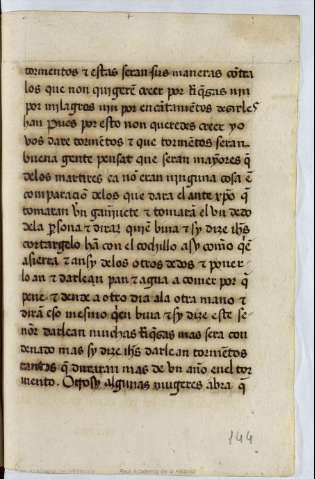 tormentos & estas seran sus maneras cõtra
los que non quigerẽ creer por Riq̃zas nin
por milagros nin por encãtamẽtos dezirles
han Pues por esto non queredes creer yo
vos dare tormẽtos & que tormẽtos seran.
buena gente pensat que seran mayores q̃
delos martires ca nõ eran ninguna cosa ẽ
comparaciõ delos que dara el ante xp̃o q̃
tomaran vn gañiuete & tomarã el vn dedo
dela p̃sona & dirar quiẽ biua & sy dize ihs̃
cortargelo hã con el cochillo asy como q̃
asierra & ansy delos otros dedos & poner
lo an & darlean pan & agua a comer por q̃
pene & dende a otro dia ala otra mano &
dirã eso mesmo quien biua & sy dize este se
nõr darlean muchas Riq̃zas mas sera con
denado mas sy dize ihs̃ darlean tormẽtos
tantos q̃ duraran mas de vn año enel tor
mento. Otrosy algunas mugeres abra q̃
144
Real Academia de la Historia